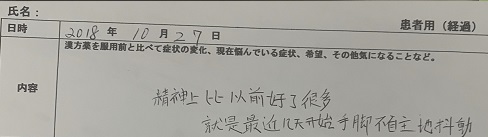 氏名：
患者用（経過）
日時 2018年 10月 27日
漢方薬を服用前と比べて症状の変化、現在悩んでいる症状、希望、その他気になることなど。
内容
精神上比以前好了很多
就是最近几天开始手脚不自主地抖動